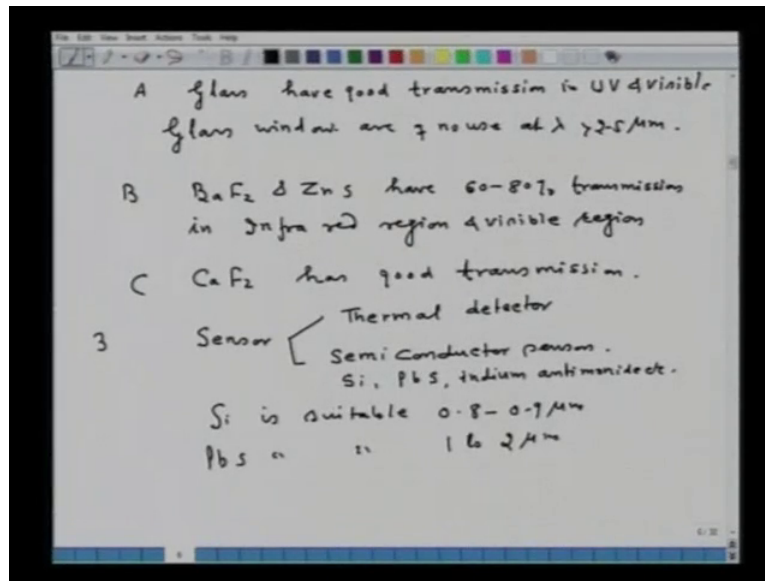 File Edit View Insert Actions Tools Help
A Glass have good transmission in UV & visible
Glass window are of no use at λ > 2.5 μm.
B BaF2 & ZnS have 60-80% transmission
in Infra red region & visible region
C CaF2 has good transmission.
Thermal detector
3 Sensor
Semi Conductor sensor.
Si, PbS, indium antimonide etc.
Si is suitable 0.8-0.9 μm
PbS " " 1 to 2 μm